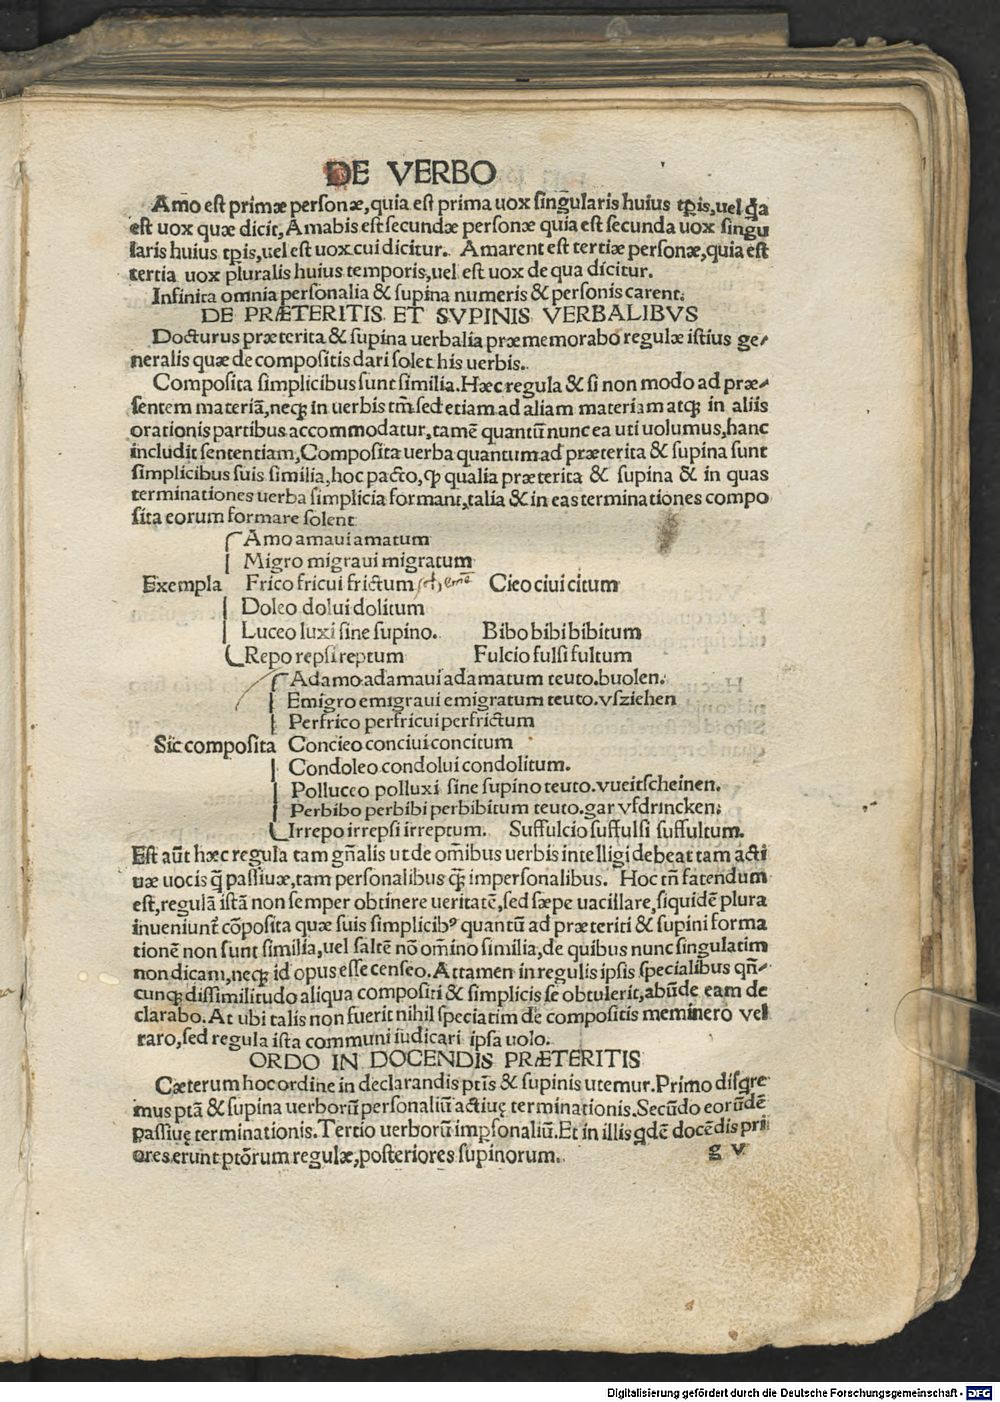 DE VERBO
Amo est primæ personæ, quia est prima uox singularis huius tp̄is, uel q̄a
est uox quæ dicit, Amabis est secundæ personæ quia est secunda uox singu
laris huius tp̄is, uel est uox cui dicitur. Amarent est tertiæ personæ, quia est
tertia uox pluralis huius temporis, uel est uox de qua dicitur.
Infinita omnia personalia & supina numeris & personis carent.
DE PRÆTERITIS ET SVPINIS VERBALIBVS
Docturus præterita & supina uerbalia præmemorabo regulæ istius ge⸗
neralis quæ de compositis dari solet his uerbis.
Composita simplicibus sunt similia. Hæc regula & si non modo ad præ⸗
sentem materiā, neqꝫ in uerbis tm̄. sed etiam ad aliam materiam atqꝫ in aliis
orationis partibus accommodatur, tamē quantū nunc ea uti uolumus, hanc
includit sententiam, Composita uerba quantum ad præterita & supina sunt
simplicibus suis similia, hoc pacto, ꝙ qualia præterita & supina & in quas
terminationes uerba simplicia formant, talia & in eas terminationes compo
sita eorum formare solent
Amo amaui amatum
Migro migraui migratum
Exempla Frico fricui frictum Cieo ciui citum
Doleo dolui dolitum
Luceo luxi sine supino. Bibo bibi bibitum
Repo repsi reptum Fulcio fulsi fultum
Adamo adamaui adamatum teuto. buolen.
Emigro emigraui emigratum teuto. vsziehen
Perfrico perfricui perfrictum
Sic composita Concieo conciui concitum
Condoleo condolui condolitum.
Polluceo polluxi sine supino teuto. vueitscheinen.
Perbibo perbibi perbibitum teuto. gar vsdrincken.
Irrepo irrepsi irreptum. Suffulcio suffulsi suffultum.
Est aūt hæc regula tam gn̄alis ut de om̄ibus uerbis intelligi debeat tam acti
uæ uocis q̄ passiuæ, tam personalibus q̄ꝫ impersonalibus. Hoc tn̄ fatendum
est, regulā istā non semper obtinere ueritatē, sed sæpe uacillare, siquidē plura
inueniunt̄ cōposita quæ suis simplicibꝰ quantū ad præteriti & supini forma
tionē non sunt similia, uel saltē nō om̄ino similia, de quibus nunc singulatim
non dicam, neqꝫ id opus esse censeo. Attamen in regulis ipsis specialibus qn̄⸗
cunqꝫ dissimilitudo aliqua compositi & simplicis sē obtulerit, abūde eam de
clarabo. At ubi talis non fuerit nihil speciatim de compositis meminero vel
raro, sed regula ista communi iudicari ipsa uolo.
ORDO IN DOCENDIS PRÆTERITIS
Cæterum hoc ordine in declarandis ptīs & supinis utemur. Primo disq̄re
mus ptā & supina uerborū personaliū actiuę terminationis. Secūdo eorūdē
passiuę terminationis. Tertio uerborū imꝑsonaliū. Et in illis q̄dē docēdis pri
ores erunt ptōrum regulæ, posteriores supinorum.
g v
Digitalisierung gefördert durch die Deutsche Forschungsgemeinschaft - DFG